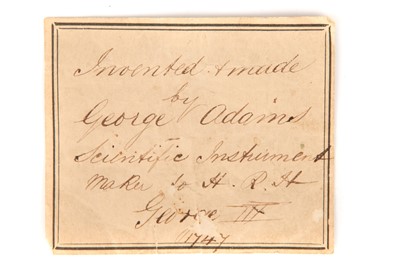 Invented + made
by
George Adams
Scientific Instrument
Maker to H. R. H
George III
1747